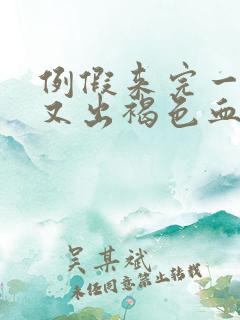 例假来完一
又出褐色血
吴某斌
未经同意禁止转载